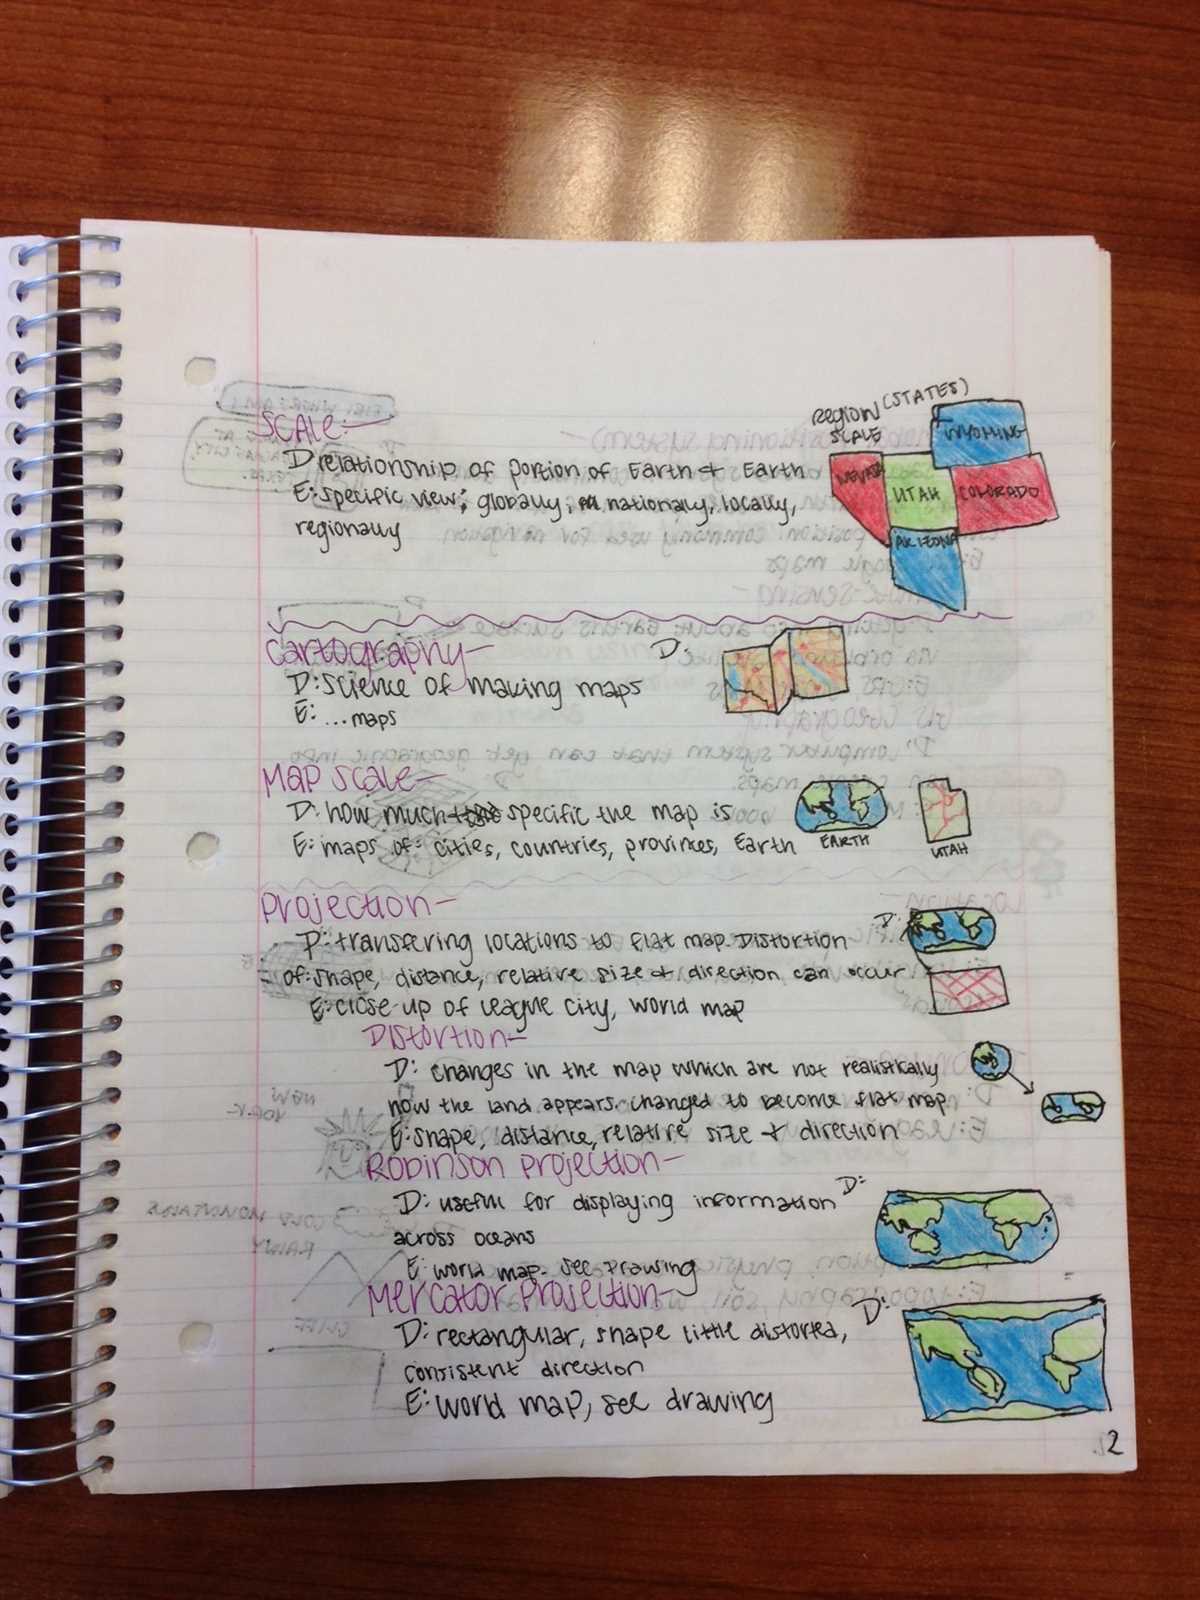 Scale-
D relationship of portion of Earth + Earth
E: specific view; globally, nationally, locally,
regionally
region (states)
scale
Wyoming
Nevada
Utah
Colorado
Arizona
Cartography-
D: science of making maps
E: ...maps
D:
Map Scale-
D: how much specific the map is
E: maps of: cities, countries, provinces, Earth
Earth
Utah
Projection-
D: transfering locations to flat map. Distortion
of: shape, distance, relative size + direction can occur
E: close-up of League City, world map
D:
Distortion-
D: changes in the map which are not realistically
how the land appears. changed to become flat map.
E: shape, distance, relative size + direction
Robinson Projection-
D: useful for displaying information
across oceans
E: world map. see drawing
D:
Mercator Projection-
D: rectangular, shape little distorted,
consistent direction
E: world map, see drawing
D:
2